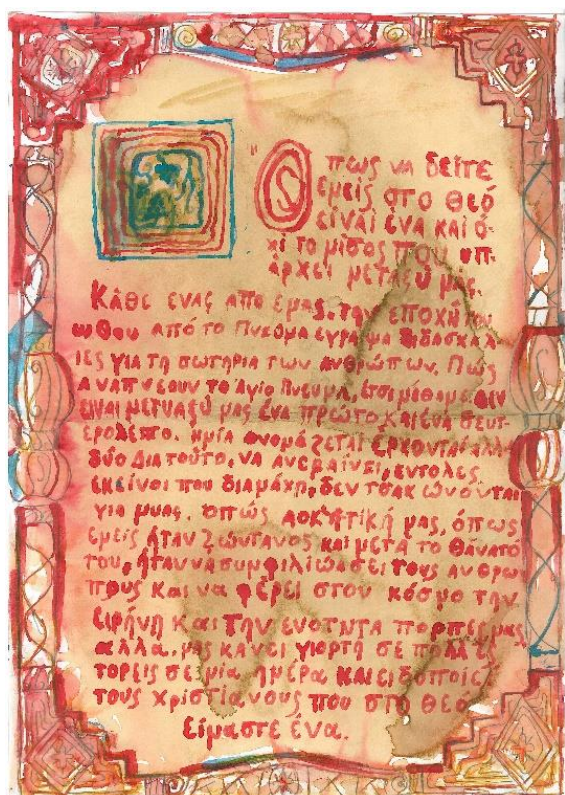 "Οπως να δείτε
εμείς στο Θεό
είναι ένα και ό-
χι το μίσος που υπ-
άρχει μεταξύ μας.
Κάθε ένας απο εμας, την εποχή του
ωθου από το Πνεύμα έγραψα διδασκαλ
ιες για τη σωτηρια των ανθρώπων. Πώς
αναπνέουν το Άγιο Πνεύμα, έτσι μάθαμε δεν
είναι μετναξύ μας ένα πρώτο και ένα δευτ
ερόλεπτο. ημία ονομάζεται έρχονται αλλ
δύο Διατούτο, να ανεβαίνει, εντολές
εκείνοι που διαμάχη, δεν τσακώνονται
για μυας. όπως ασκητική μας, όπως
εμείς ήταν ζωντανος και μετά το θάνατό
του, ήταν να συμφιλιώσει τους ανθρω
πους και να φέρει στον κόσμο την
ειρήνη και την ενότητα πορπερμας
αλλα. μας κάνει γιορτή σε πολλές
τορεις σε μία ημέρα και ειδοποιεί
τους χριστιανους που στο Θεό
είμαστε ένα.